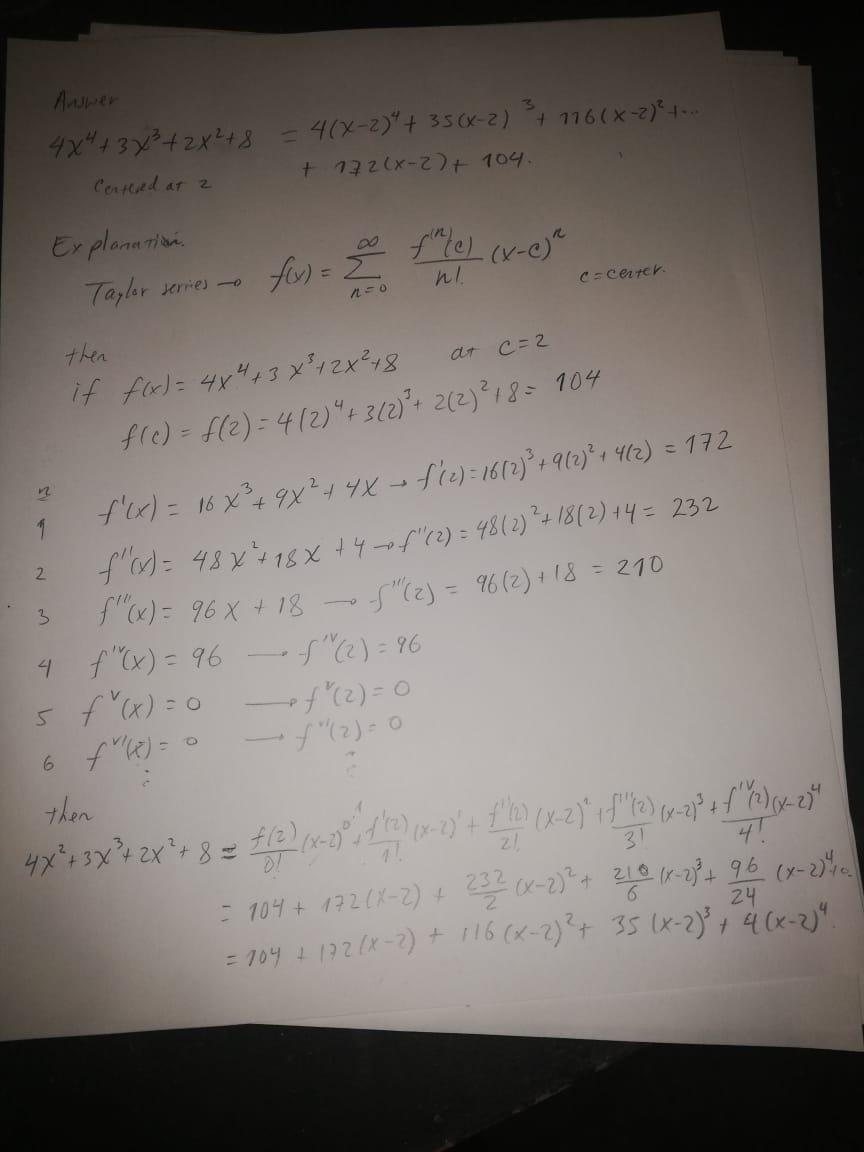 Answer
4x⁴+3x³+2x²+8 = 4(x-2)⁴+ 35(x-2)³ + 116(x-2)²+...
+ 172(x-2)+ 104.
Centered at 2
Explanation.
Taylor serries → f(x) = ∑_{n=0}^{∞} f⁽ⁿ⁾(c)/n! (x-c)ⁿ c=center.
then
if f(x)= 4x⁴+3x³+2x²+8 at c=2
f(c) = f(2) = 4(2)⁴+3(2)³+ 2(2)²+8= 104
n
1 f'(x) = 16x³+9x²+4x → f'(2)=16(2)³+9(2)²+4(2) = 172
2 f''(x)= 48x²+18x+4 → f''(2) = 48(2)²+18(2)+4= 232
3 f'''(x)= 96x+18 → f'''(2) = 96(2)+18 = 210
4 f^{IV}(x) = 96 → f^{IV}(2) = 96
5 f^{V}(x) = 0 → f^{V}(2) = 0
6 f^{VI}(x) = 0 → f^{VI}(2) = 0
⋮ ⋮
then
4x²+3x³+2x²+8 = f(2)/0! (x-2)⁰ + f'(2)/1! (x-2)¹ + f''(2)/2! (x-2)² + f'''(2)/3! (x-2)³ + f^{IV}(2)/4! (x-2)⁴
= 104 + 172(x-2) + 232/2 (x-2)² + 210/6 (x-2)³ + 96/24 (x-2)⁴+0..
= 104 + 172(x-2) + 116(x-2)² + 35(x-2)³ + 4(x-2)⁴.